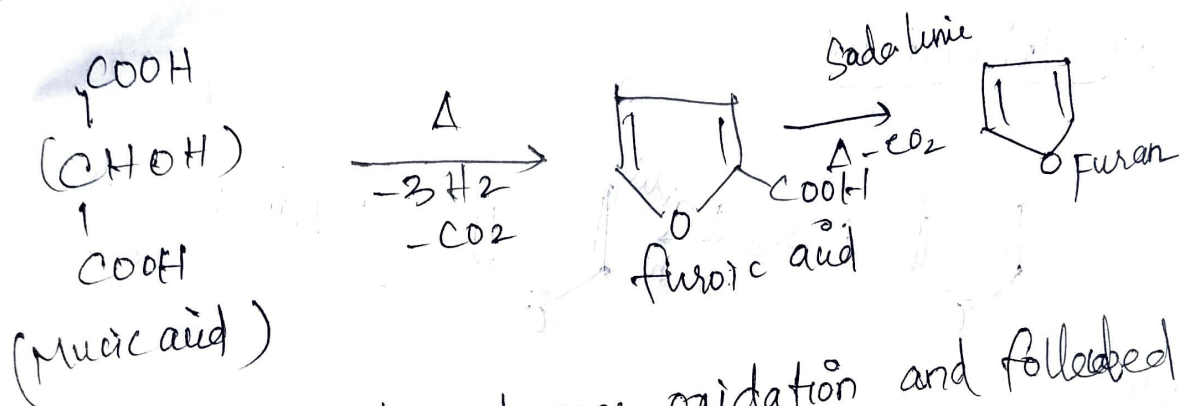 COOH
(CHOH)
COOH
(Mucic acid)
Δ
-3H2
-CO2
O
COOH
furoic acid
Soda lime
Δ -CO2
O Furan
oxidation and followed